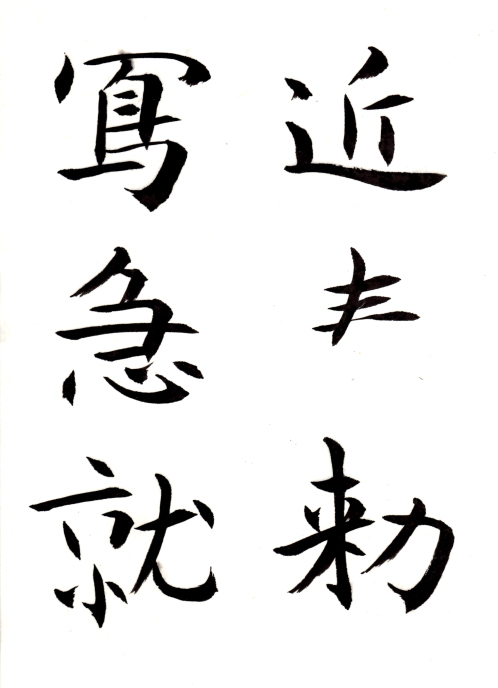 近奉勅
寫急就